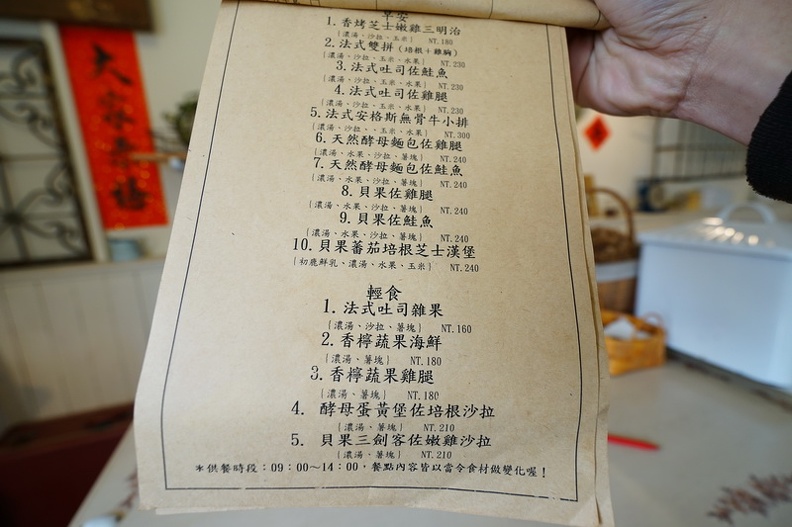 早安
1. 香烤芝士嫩雞三明治
(濃湯、沙拉、玉米) NT.180
2. 法式雙拼(培根+雞胸)
(濃湯、沙拉、玉米、水果) NT.230
3. 法式吐司佐鮭魚
(濃湯、沙拉、玉米、水果) NT.230
4. 法式吐司佐雞腿
(濃湯、沙拉、玉米、水果) NT.230
5. 法式安格斯無骨牛小排
(濃湯、沙拉、、玉米、水果) NT.300
6. 天然酵母麵包佐雞腿
(濃湯、水果、沙拉、薯塊) NT.240
7. 天然酵母麵包佐鮭魚
(濃湯、水果、沙拉、薯塊) NT.240
8. 貝果佐雞腿
(濃湯、水果、沙拉、薯塊) NT.240
9. 貝果佐鮭魚
(濃湯、水果、沙拉、薯塊) NT.240
10. 貝果蕃茄培根芝士漢堡
(初鹿鮮乳、濃湯、水果、玉米) NT.240
輕食
1. 法式吐司雜果
(濃湯、沙拉、薯塊) NT.160
2. 香檸蔬果海鮮
(濃湯、薯塊) NT.180
3. 香檸蔬果雞腿
(濃湯、薯塊) NT.180
4. 酵母蛋黃堡佐培根沙拉
(濃湯、薯塊) NT.210
5. 貝果三劍客佐嫩雞沙拉
(濃湯、薯塊) NT.210
*供餐時段:09:00~14:00,餐點內容皆以當令食材做變化喔!